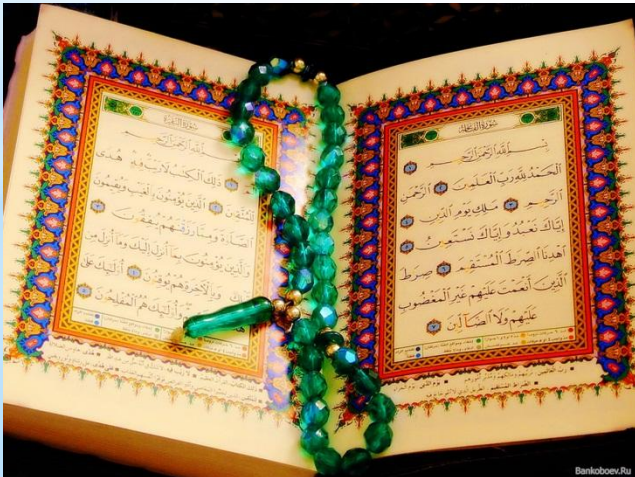 سُورَةُ الفَاتِحَة
بِسْمِ اللَّهِ الرَّحْمَٰنِ الرَّحِيمِ
الْحَمْدُ لِلَّهِ رَبِّ الْعَٰلَمِينَ الرَّحْمَٰنِ
الرَّحِيمِ مَٰلِكِ يَوْمِ الدِّينِ
إِيَّاكَ نَعْبُدُ وَإِيَّاكَ نَسْتَعِينُ
اهْدِنَا الصِّرَٰطَ الْمُسْتَقِيمَ صِرَٰطَ
الَّذِينَ أَنْعَمْتَ عَلَيْهِمْ غَيْرِ الْمَغْضُوبِ
عَلَيْهِمْ وَلَا الضَّالِّينَ
سُورَةُ البَقَرَة
بِسْمِ اللَّهِ الرَّحْمَٰنِ الرَّحِيمِ
ذَٰلِكَ الْكِتَٰبُ لَا رَيْبَ فِيهِ هُدًى
لِلْمُتَّقِينَ الَّذِينَ يُؤْمِنُونَ بِالْغَيْبِ وَيُقِيمُونَ
الصَّلَوٰةَ وَمِمَّا رَزَقْنَٰهُمْ يُنْفِقُونَ
وَالَّذِينَ يُؤْمِنُونَ بِمَا أُنْزِلَ إِلَيْكَ وَمَا أُنْزِلَ مِنْ
وَبِالْآخِرَةِ هُمْ يُوقِنُونَ أُولَٰئِكَ عَلَىٰ
وَأُولَٰئِكَ هُمُ الْمُفْلِحُونَ
Bankoboev.Ru